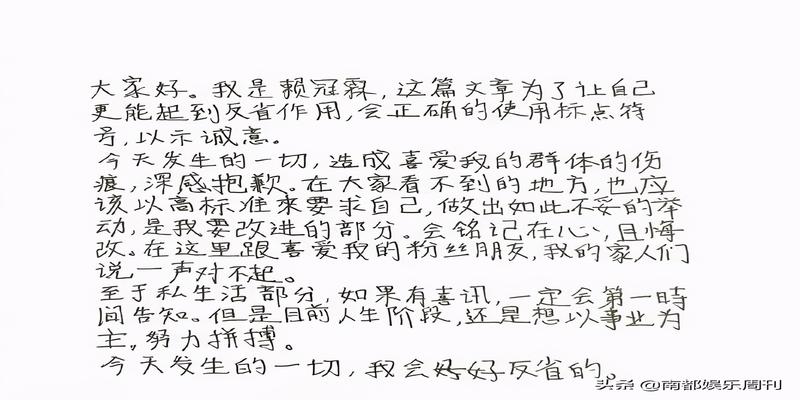 大家好。我是赖冠霖，这篇文章为了让自己
更能起到反省作用，会正确的使用标点符
号，以示诚意。
今天发生的一切，造成喜爱我的群体的伤
痕，深感抱歉。在大家看不到的地方，也应
该以高标准来要求自己，做出如此不妥的举
动，是我要改进的部分。会铭记在心，且悔
改。在这里跟喜爱我的粉丝朋友，我的家人们
说一声对不起。
至于私生活部分，如果有喜讯，一定会第一時
间告知。但是目前人生阶段，还是想以事业为
主，努力拼搏。
今天发生的一切，我会好好反省的。
头条 @南都娱乐周刊